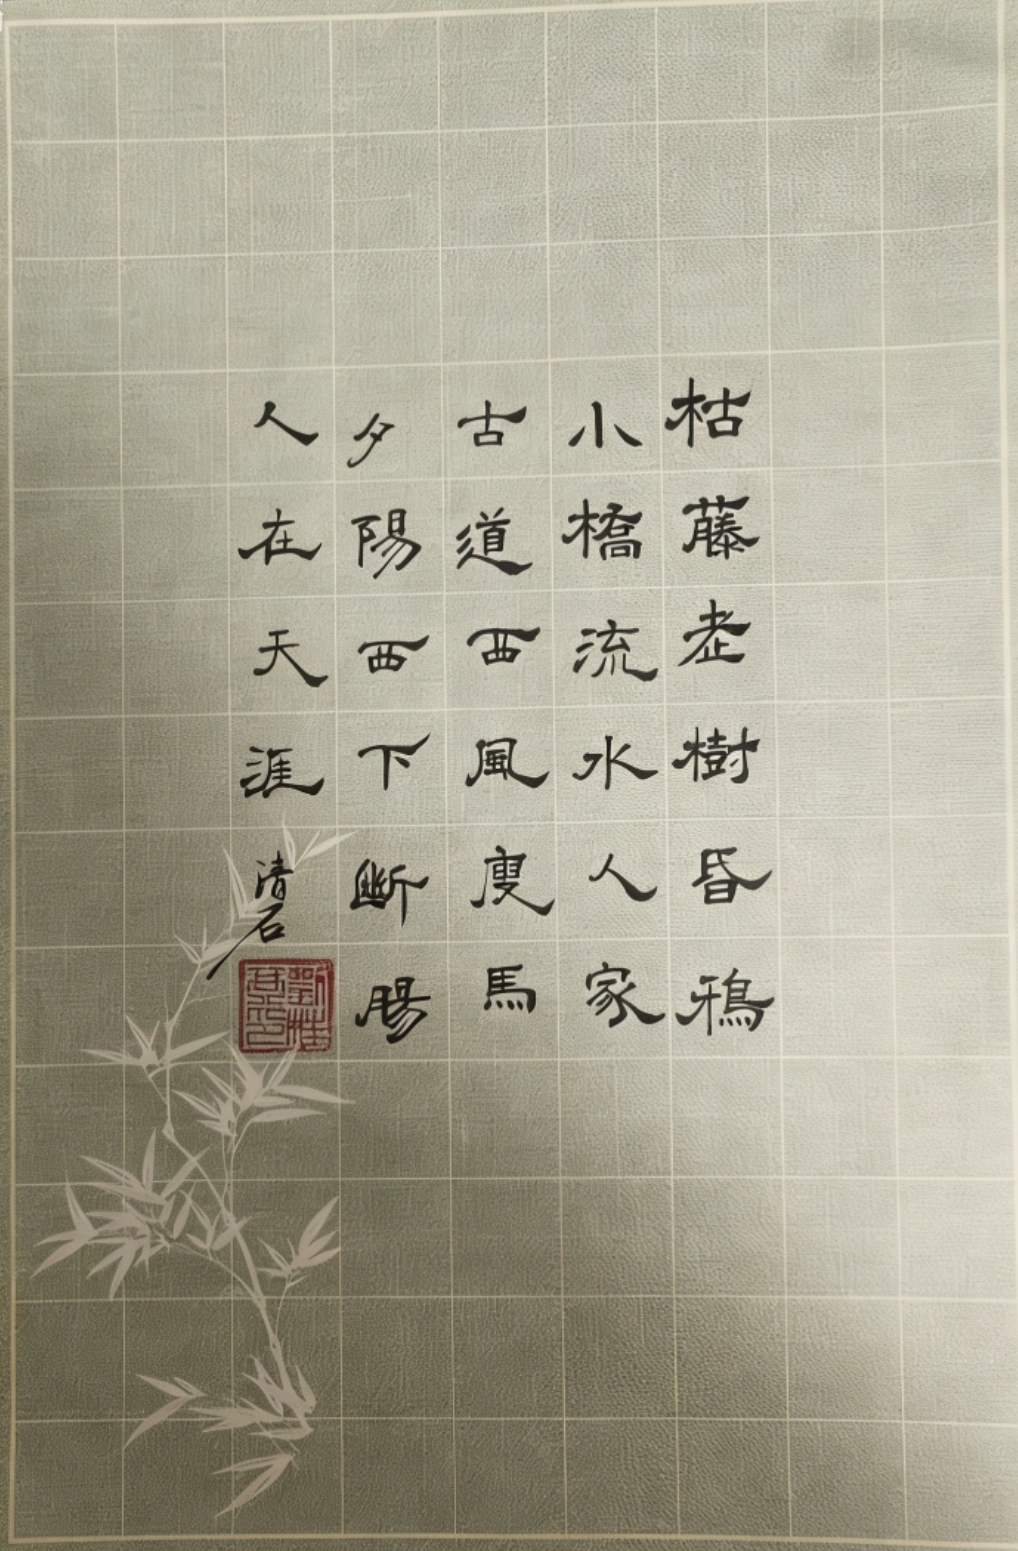 枯藤老樹昏鴉
小橋流水人家
古道西風瘦馬
夕陽西下斷腸
人在天涯
清石